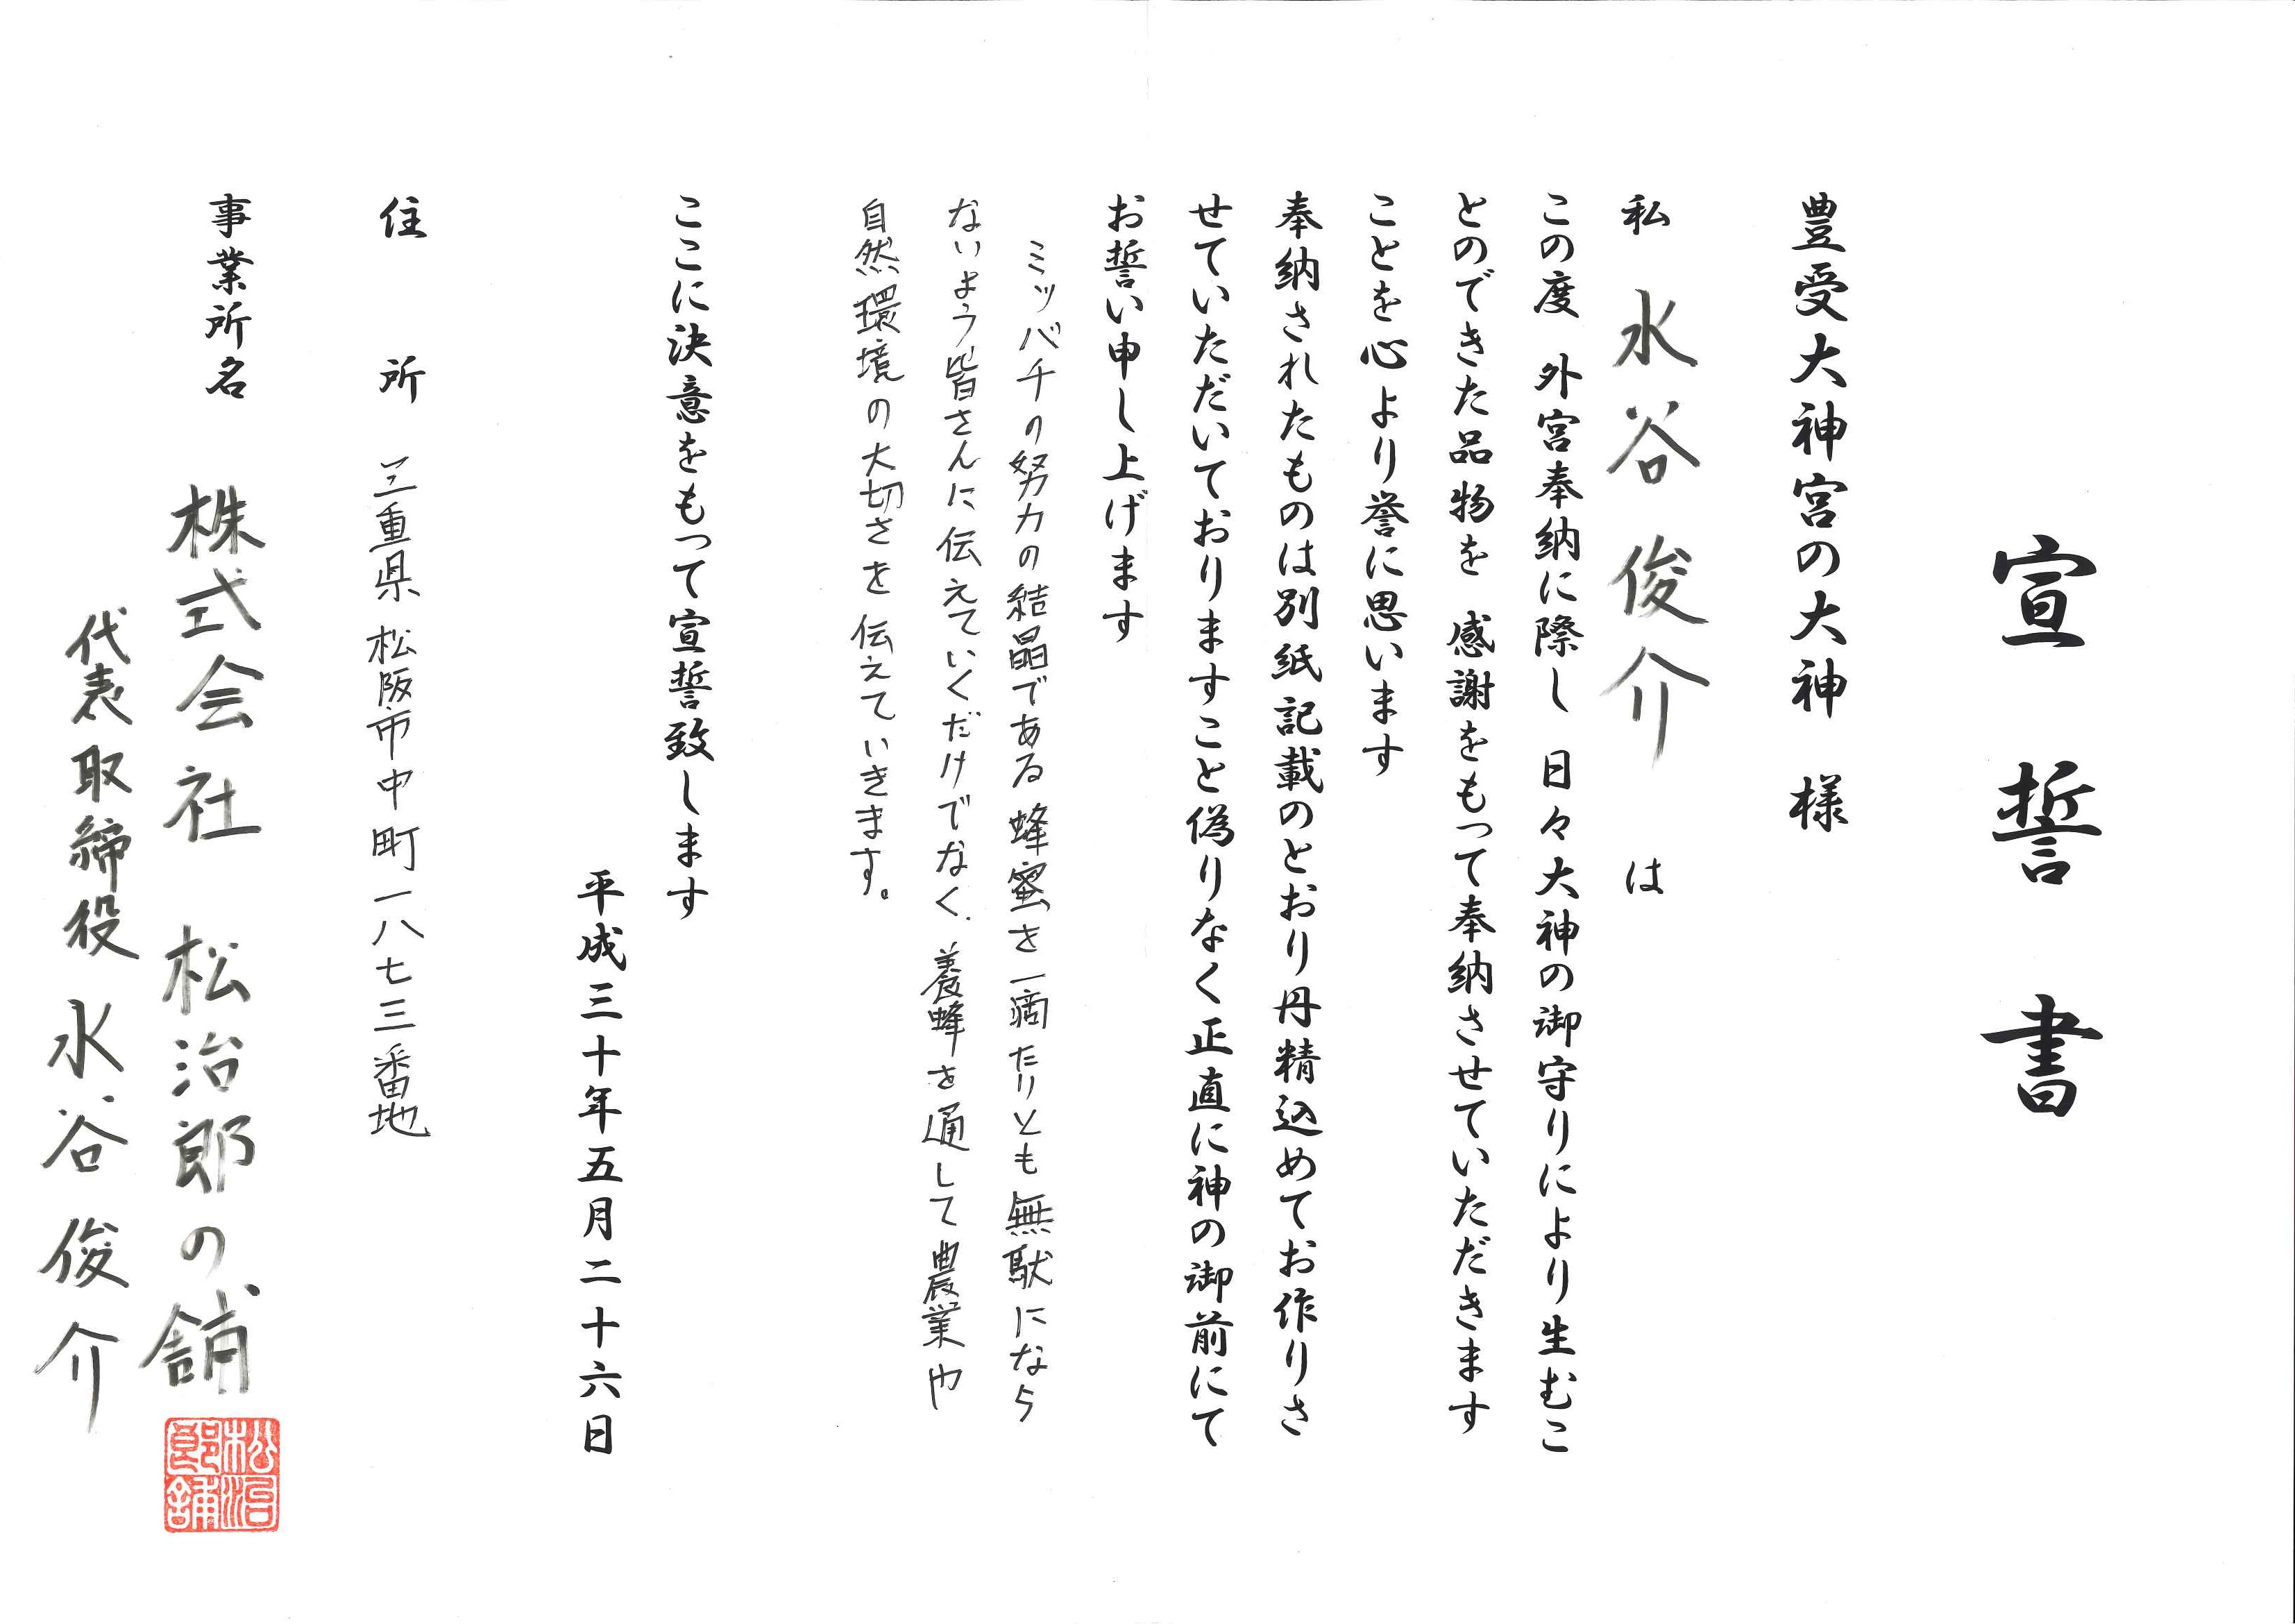 宣誓書
豊受大神宮の大神　様
私　水谷俊介　は
この度　外宮奉納に際し　日々大神の御守りにより生むこ
とのできた品物を　感謝をもって奉納させていただきます
ことを心より誉に思います
奉納されたものは別紙記載のとおり丹精込めてお作りさ
せていただいておりますこと偽りなく正直に神の御前にて
お誓い申し上げます
ミツバチの努力の結晶である蜂蜜を一滴たりとも無駄になら
ないよう皆さんに伝えていくだけでなく、養蜂を通して農業や
自然環境の大切さを伝えていきます。
ここに決意をもって宣誓致します
平成三十年五月二十六日
住　所　三重県松阪市中町一八七三番地
事業所名　株式会社　松治郎の舗
代表取締役　水谷俊介
松治
郎舗